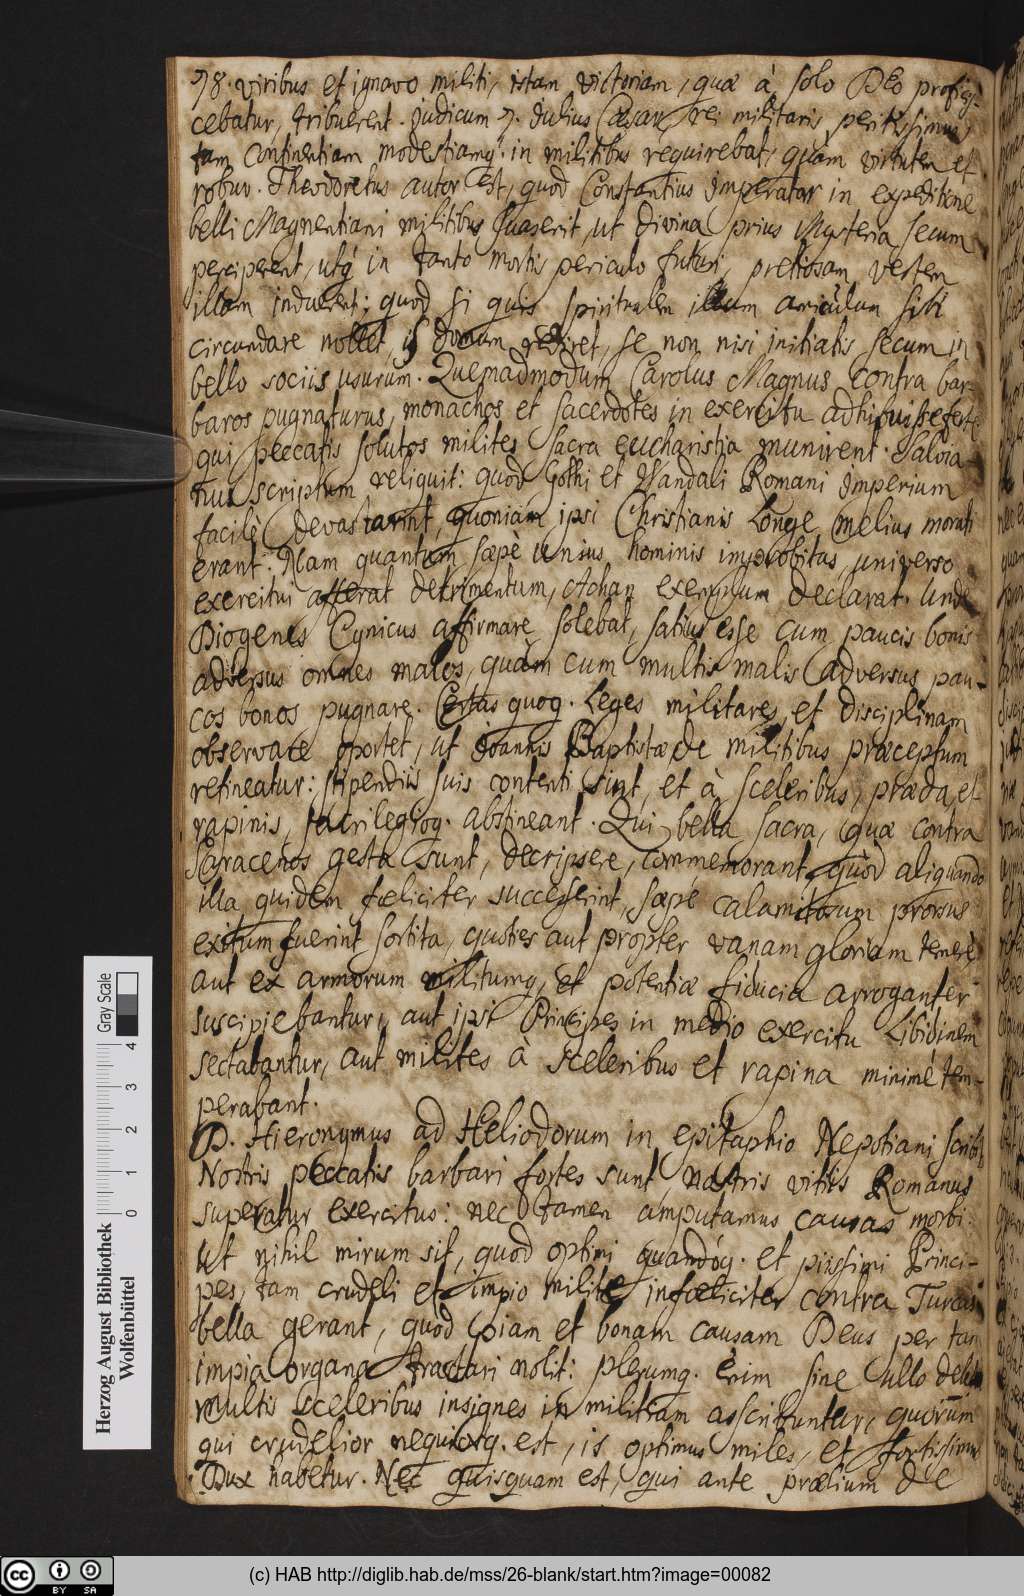 78. viribus et ignavo militi, istam victoriam, quæ à solo Deo profici-
cebatur, tribuerent. judicum 7. Julius Cæsar, rei militaris peritissimus
tam continentiam modestiamq́ in militibus requirebat, quàm virtutem et
robur. Theodoretus autor est, quod Constantius Imperator in expeditione
belli Magnentiani militibus suaserit, ut divina prius Mysteria secum
perciperent, utq́ in tanto mortis periculo futuri, pretiosam vestem
illam induerent: quod si quis spiritualem illum amiculum sibi
circundare nollet, is domum rediret, se non nisi initiatis secum in
bello sociis usurum. Quemadmodum Carolus Magnus contra bar-
baros pugnaturus, monachos et sacerdotes in exercitu adhibuisse fert:
qui peccatis solutos milites sacra eucharistia munirent. Salvia-
nus scriptum reliquit: quod Gothi et Vandali Romani Imperium
facilè devastarint, quoniam ipsi Christianis longe melius morati
erant. Nam quantum sæpè unius hominis improbitas, universo
exercitui afferat detrimentum, Achan exemplum declarat. Unde
Diogenes Cynicus affirmare solebat, satius esse cum paucis bonis
adversus omnes malos, quàm cum multis malis adversus pau-
cos bonos pugnare. Certas quoq. Leges militares, et disciplinam
observare oportet, ut Joannis Baptistæ de militibus præceptum
retineatur: stipendiis suis contenti sint, et à sceleribus, præda, et
rapinis, sacrilegioq. abstineant. Qui bella sacra, quæ contra
Saracenos gesta sunt, descripsere, commemorant, quòd aliquando
illa quidem fœliciter successerint, sæpe calamitosum prorsus
exitum fuerint sortita, quoties aut propter vanam gloriam temerè,
aut ex armorum militumq, et potentiæ fiducia arroganter
suscipiebantur, aut ipsi Principes in medio exercitu Libidinem
sectabantur, aut milites à sceleribus et rapina minimè tem-
perabant.
D. Hieronymus ad Heliodorum in epitaphio Nepotiani scribit
Nostris peccatis barbari fortes sunt, nostris vitiis Romanus
superatur exercitus: nec tamen amputamus causas morbi
Ut nihil mirum sit, quod optimi quandoq́. et piissimi Princi-
pes, tam crudeli et impio milite infœliciter contra Turcas
bella gerant, quòd piam et bonam causam Deus per tam
impia organa tractari nolit: plerumq. enim sine ullo delectu
multis sceleribus insignes in militiam asscribuntur, quorum
qui crudelior nequiorq. est, is optimus miles, et fortissimus
Dux habetur. Nec quisquam est, qui ante prælium de
Herzog August Bibliothek
Wolfenbüttel
0 1 2 3 4
Gray Scale
cc BY SA
(c) HAB http://diglib.hab.de/mss/26-blank/start.htm?image=00082